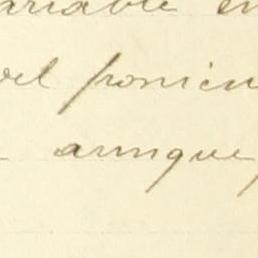 ariable en
vel ponien
aunque,